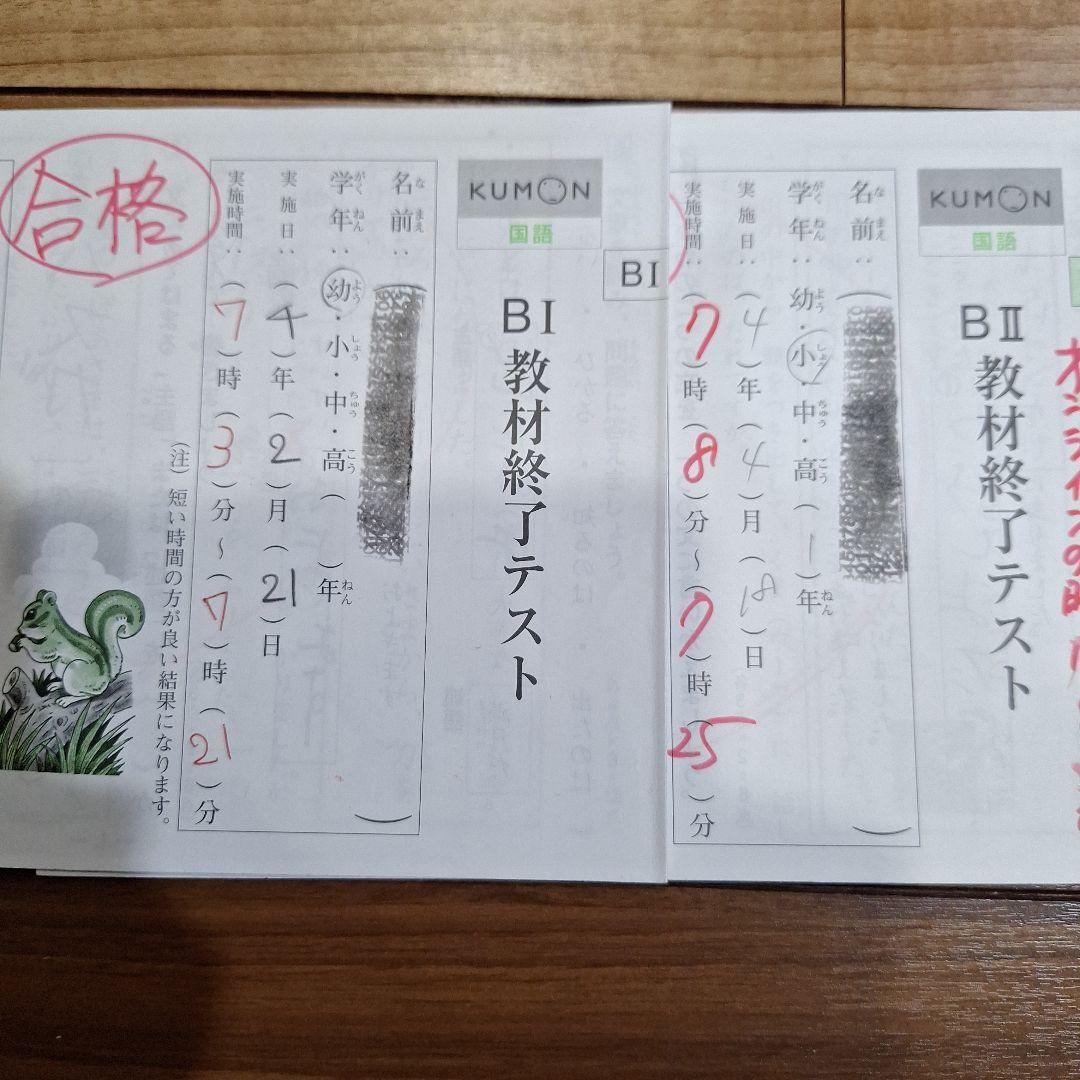 KUMON
国語
BⅡ教材終了テスト
名前：（ ）
学年：幼・小・中・高（1）年
実施日：（4）年（4）月（18）日
実施時間：（7）時（8）分～（7）時（25）分
KUMON
国語
BⅠ
BⅠ教材終了テスト
名前：（ ）
学年：幼・小・中・高（ ）年
実施日：（4）年（2）月（21）日
実施時間：（7）時（3）分～（7）時（21）分
（注）短い時間の方が良い結果になります。
合格